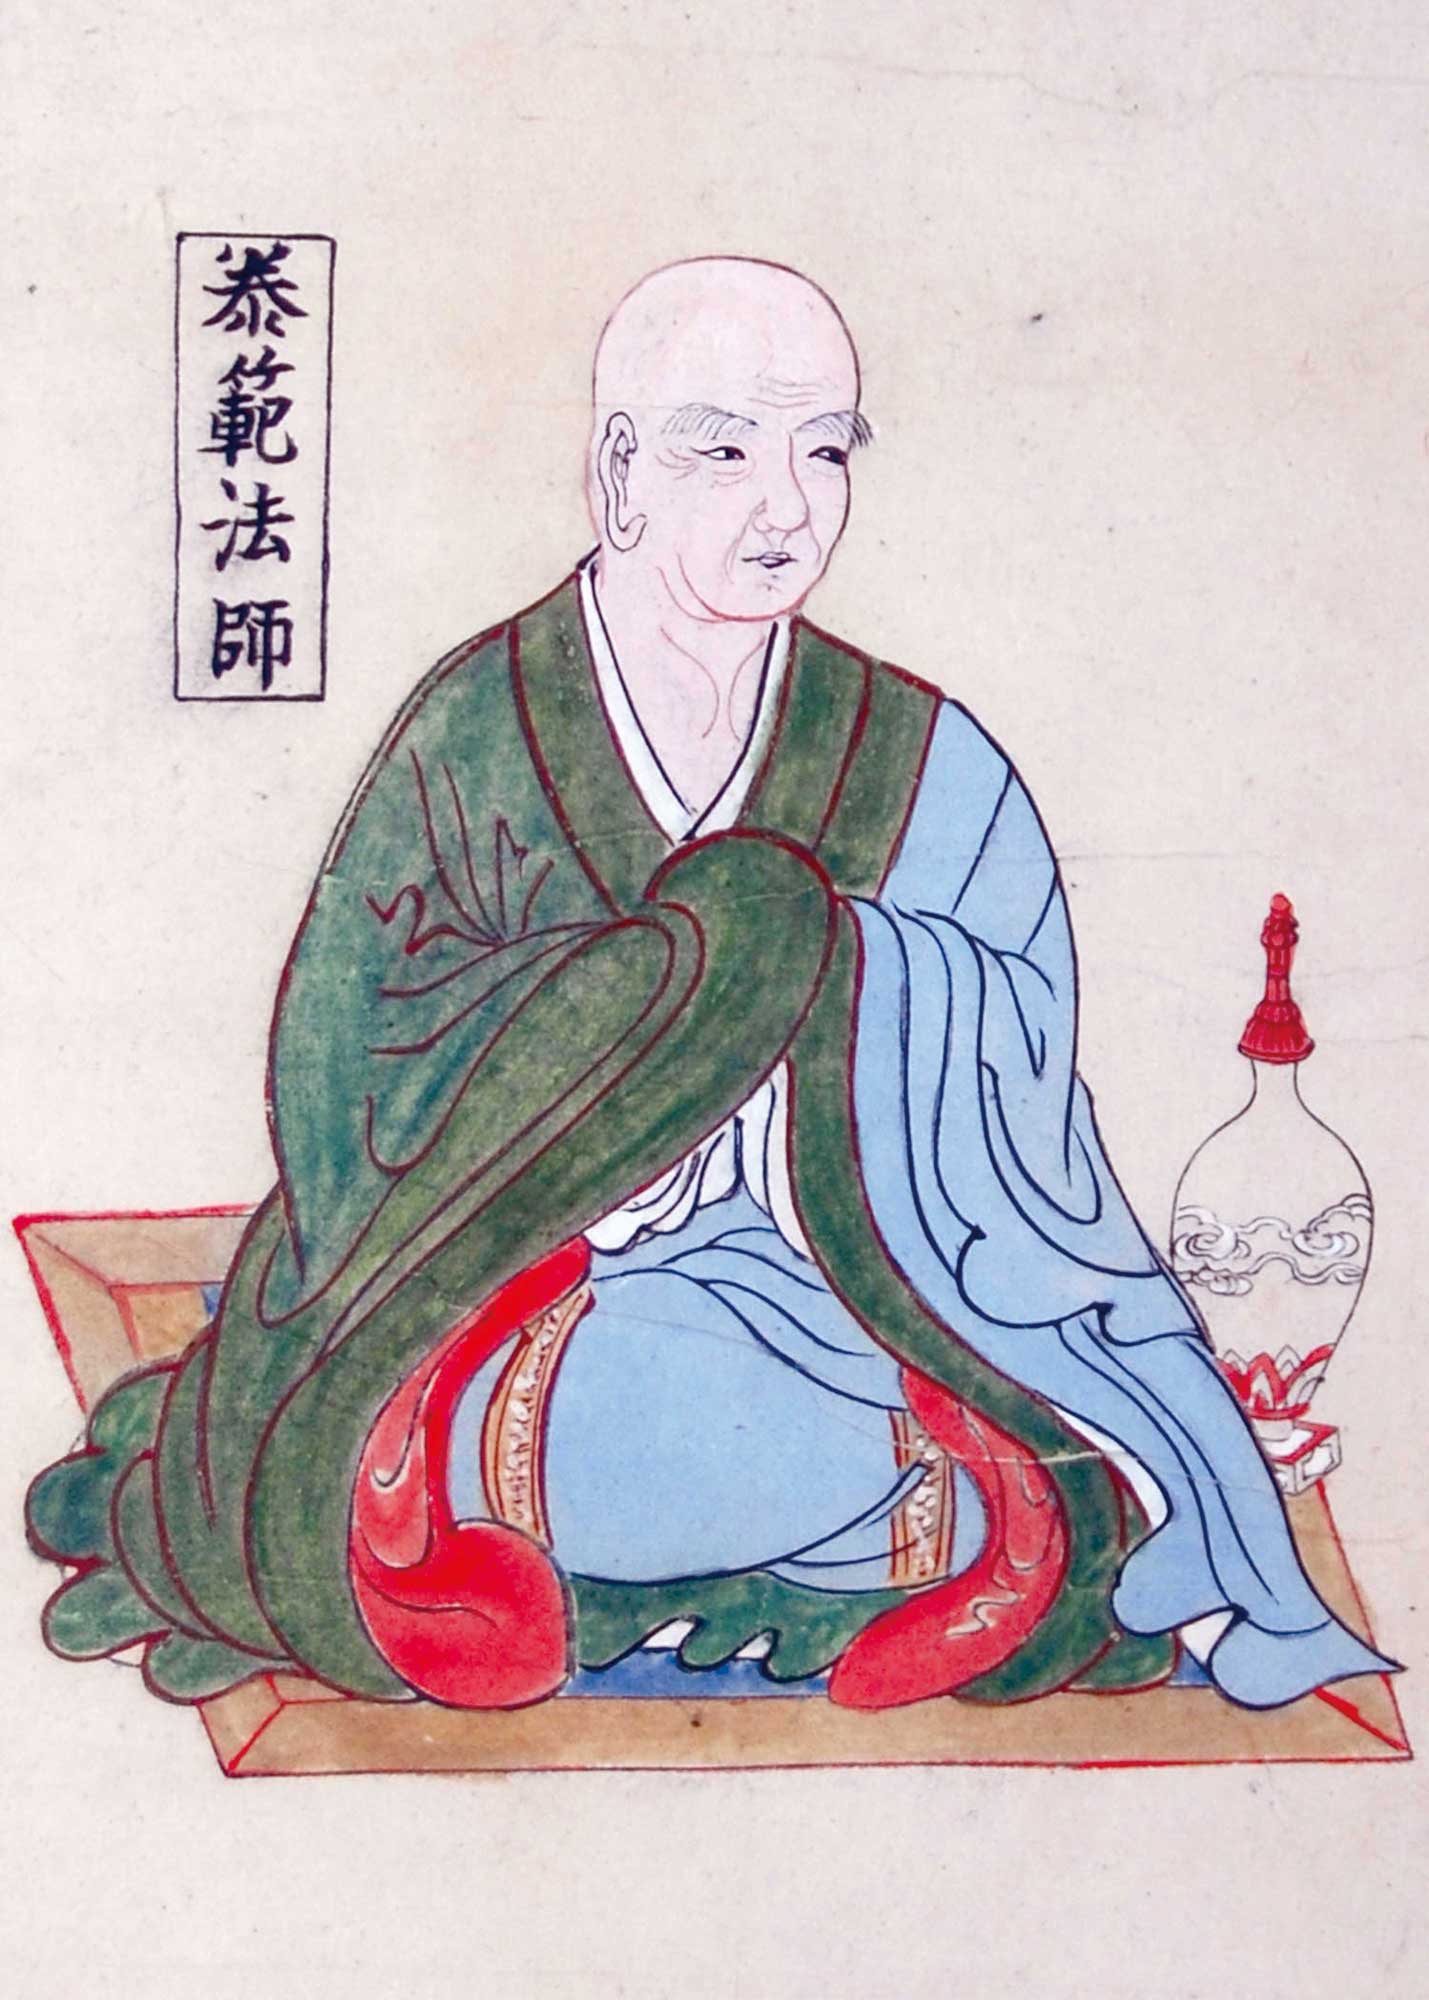 泰範法師